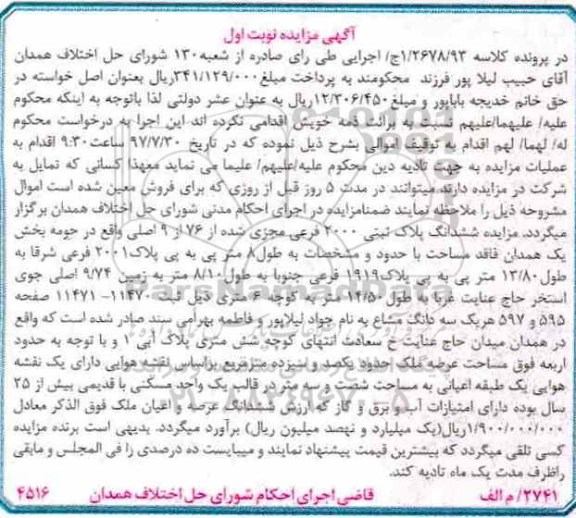 آگهی مزایده نوبت اول
در پرونده کلاسه ۱/۲۶۷۸/۹۳ج/ اجرایی طی رای صادره از شعبه ۱۳۰ شورای حل اختلاف همدان
آقای حبیب لیلا پور فرزند محکومند به پرداخت مبلغ ۳۴۱/۱۲۹/۰۰۰ریال بعنوان اصل خواسته در
حق خانم خدیجه باباپور و مبلغ ۱۲/۳۰۶/۴۵۰ریال به عنوان عشر دولتی لذا باتوجه به اینکه محکوم
علیه/ علیهما/علیهم نسبت به برائت ذمه خویش اقدامی نکرده اند این اجرا به درخواست محکوم
له/ لهما/ لهم اقدام به توقیف اموالی بشرح ذیل نموده که در تاریخ ۹۷/۷/۳۰ ساعت ۹:۳۰ اقدام به
عملیات مزایده به جهت تادیه دین محکوم علیه/علیهم/ علیما می نماید معهذا کسانی که تمایل به
شرکت در مزایده دارند میتوانند در مدت ۵ روز قبل از روزی که برای فروش معین شده است اموال
مشروحه ذیل را ملاحظه نمایند ضمنامزایده در اجرای احکام مدنی شورای حل اختلاف همدان برگزار
میگردد. مزایده ششدانگ پلاک ثبتی ۲۰۰۰ فرعی مجزی شده از ۷۶ از ۹ اصلی واقع در حومه بخش
یک همدان فاقد مساحت با حدود و مشخصات به طول۸ متر پی به پی پلاک۲۰۰۱ فرعی شرقا به
طول ۱۳/۸۰ متر پی به پی پلاک۱۹۱۹ فرعی جنوبا به طول ۸/۱۰ متر به زمین ۹/۷۴ اصلی جوی
استخر حاج عنایت غربا به طول ۱۴/۵۰ متر به کوچه ۶ متری ذیل ثبت ۱۱۴۷۰- ۱۱۴۷۱ صفحه
۵۹۵ و ۵۹۷ هریک سه دانگ مشاع به نام جواد لیلاپور و فاطمه بهرامی سند صادر شده است که واقع
در همدان میدان حاج عنایت خ سعادت انتهای کوچه شش متری پلاک آبی ۱ و با توجه به حدود
اربعه فوق مساحت عرصه ملک حدود یکصد و سیزده مترمربع براساس نقشه هوایی دارای یک نقشه
هوایی یک طبقه اعیانی به مساحت شصت و سه متر در قالب یک واحد مسکنی با قدیمی بیش از ۲۵
سال بوده دارای امتیازات آب و برق و گاز که ارزش ششدانگ عرصه و اعیان ملک فوق الذکر معادل
۱/۹۰۰/۰۰۰/۰۰۰ریال(یک میلیارد و نهصد میلیون ریال) برآورد میگردد. بدیهی است برنده مزایده
کسی تلقی میگردد که بیشترین قیمت پیشنهاد نمایند و میبایست ده درصدی را فی المجلس و مابقی
راظرف مدت یک ماه تادیه کند.
۲۷۴۱/ م الف قاضی اجرای احکام شورای حل اختلاف همدان ۴۵۱۶
ParsNamadData